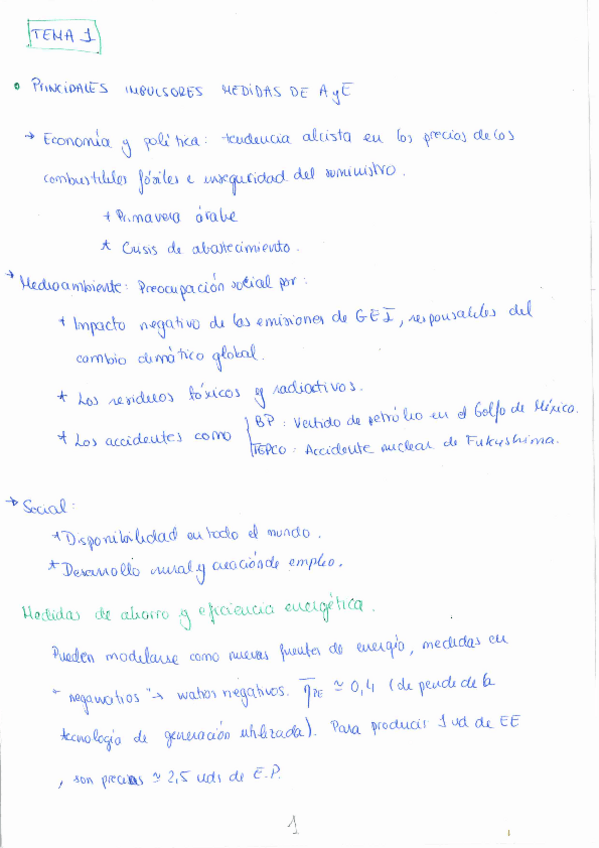 TEMA 1
• PRINCIPALES IMPULSORES MEDIDAS DE A y E
→ Economía y política: tendencia alcista en los precios de los
combustibles fósiles e inseguridad del suministro.
* Primavera árabe
* Crisis de abastecimiento.
→ Medioambiente: Preocupación social por:
* Impacto negativo de las emisiones de GEI, responsables del
cambio climático global.
* Los residuos tóxicos y radiactivos.
* Los accidentes como { BP: Vertido de petróleo en el Golfo de México.
TEPCO: Accidente nuclear de Fukushima.
→ Social:
* Disponibilidad en todo el mundo.
* Desarrollo rural y creación de empleo.
Medidas de ahorro y eficiencia energética.
Pueden modelarse como nuevas fuentes de energía, medidas en
"negawatios" → watios negativos. η̅PE ≃ 0,4 (depende de la
tecnología de generación utilizada). Para producir 1 ud de EE
, son precisas ≃ 2,5 uds de E.P.
1